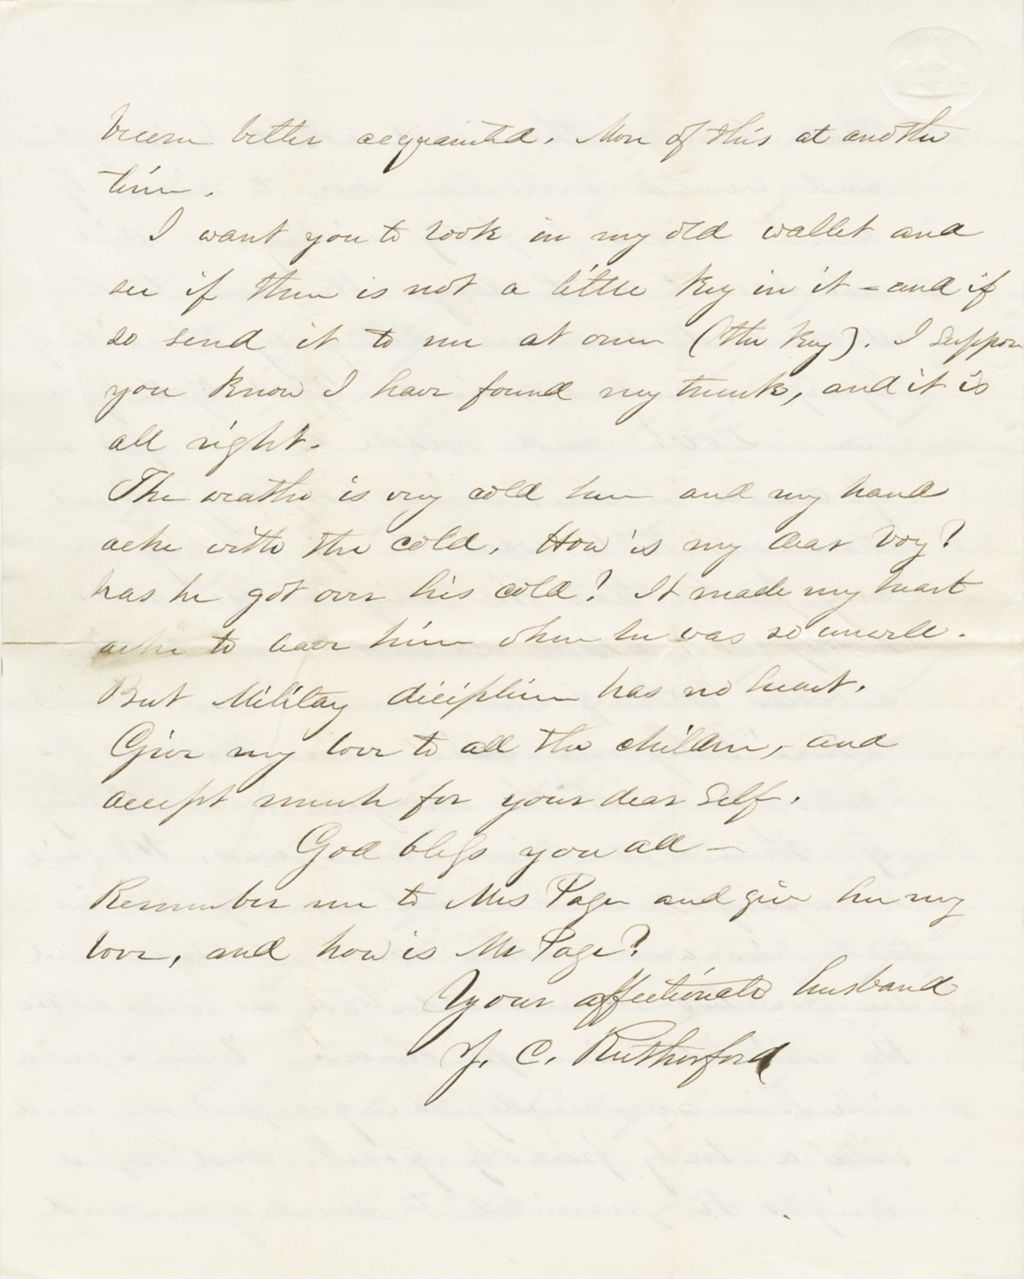 become better acquainted. More of this at another
time.
I want you to look in my old wallet and
see if there is not a little key in it – and if
so send it to me at once (the key). I suppose
you know I have found my trunk, and it is
all right.
The weather is very cold here and my hands
ache with the cold. How is my dear boy?
has he got over his cold? It made my heart
ache to leave him when he was so unwell.
But Military diciplin has no heart.
Give my love to all the children, and
accept much for your dear self.
God bless you all –
Remember me to Mrs Page and give her my
love, and how is Mr Page?
Your affectionate husband
J. C. Rutherford